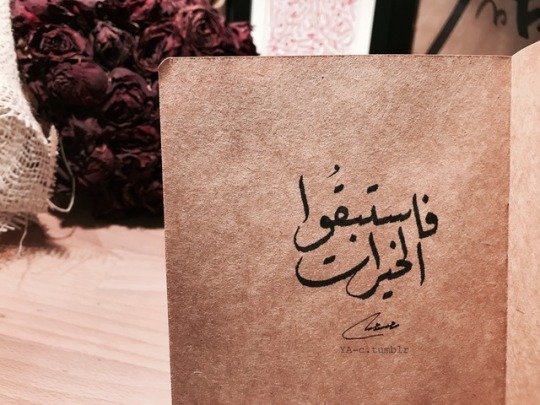 فاستبقُوا
الخيرات
YA-c.tumblr